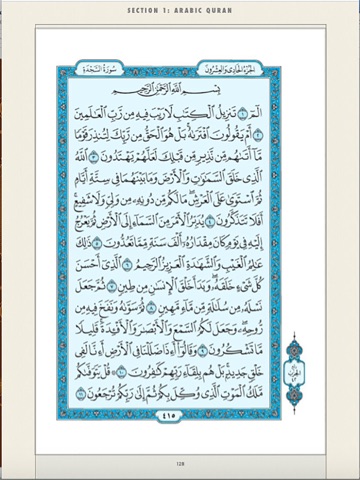 SECTION 1: ARABIC QURAN
سُورَةُ السَّجْدَةِ الجُزْءُ الحَادِي وَالعِشْرُونَ
بِسْمِ اللَّهِ الرَّحْمَٰنِ الرَّحِيمِ
الٓمٓ ١ تَنزِيلُ ٱلْكِتَٰبِ لَا رَيْبَ فِيهِ مِن رَّبِّ ٱلْعَٰلَمِينَ
٢ أَمْ يَقُولُونَ ٱفْتَرَىٰهُ بَلْ هُوَ ٱلْحَقُّ مِن رَّبِّكَ لِتُنذِرَ قَوْمًا
مَّآ أَتَىٰهُم مِّن نَّذِيرٍ مِّن قَبْلِكَ لَعَلَّهُمْ يَهْتَدُونَ ٣ ٱللَّهُ
ٱلَّذِى خَلَقَ ٱلسَّمَٰوَٰتِ وَٱلْأَرْضَ وَمَا بَيْنَهُمَا فِى سِتَّةِ أَيَّامٍ
ثُمَّ ٱسْتَوَىٰ عَلَى ٱلْعَرْشِ مَا لَكُم مِّن دُونِهِۦ مِن وَلِىٍّ وَلَا شَفِيعٍ
أَفَلَا تَتَذَكَّرُونَ ٤ يُدَبِّرُ ٱلْأَمْرَ مِنَ ٱلسَّمَآءِ إِلَى ٱلْأَرْضِ ثُمَّ يَعْرُجُ
إِلَيْهِ فِى يَوْمٍ كَانَ مِقْدَارُهُۥٓ أَلْفَ سَنَةٍ مِّمَّا تَعُدُّونَ ٥ ذَٰلِكَ
عَٰلِمُ ٱلْغَيْبِ وَٱلشَّهَٰدَةِ ٱلْعَزِيزُ ٱلرَّحِيمُ ٦ ٱلَّذِىٓ أَحْسَنَ
كُلَّ شَىْءٍ خَلَقَهُۥ وَبَدَأَ خَلْقَ ٱلْإِنسَٰنِ مِن طِينٍ ٧ ثُمَّ جَعَلَ
نَسْلَهُۥ مِن سُلَٰلَةٍ مِّن مَّآءٍ مَّهِينٍ ٨ ثُمَّ سَوَّىٰهُ وَنَفَخَ فِيهِ مِن
رُّوحِهِۦ وَجَعَلَ لَكُمُ ٱلسَّمْعَ وَٱلْأَبْصَٰرَ وَٱلْأَفْـِٔدَةَ قَلِيلًا
مَّا تَشْكُرُونَ ٩ وَقَالُوٓا۟ أَءِذَا ضَلَلْنَا فِى ٱلْأَرْضِ أَءِنَّا لَفِى
خَلْقٍ جَدِيدٍۭ بَلْ هُم بِلِقَآءِ رَبِّهِمْ كَٰفِرُونَ ١٠ ۞ قُلْ يَتَوَفَّىٰكُم
مَّلَكُ ٱلْمَوْتِ ٱلَّذِى وُكِّلَ بِكُمْ ثُمَّ إِلَىٰ رَبِّكُمْ تُرْجَعُونَ ١١
٤١٥
128